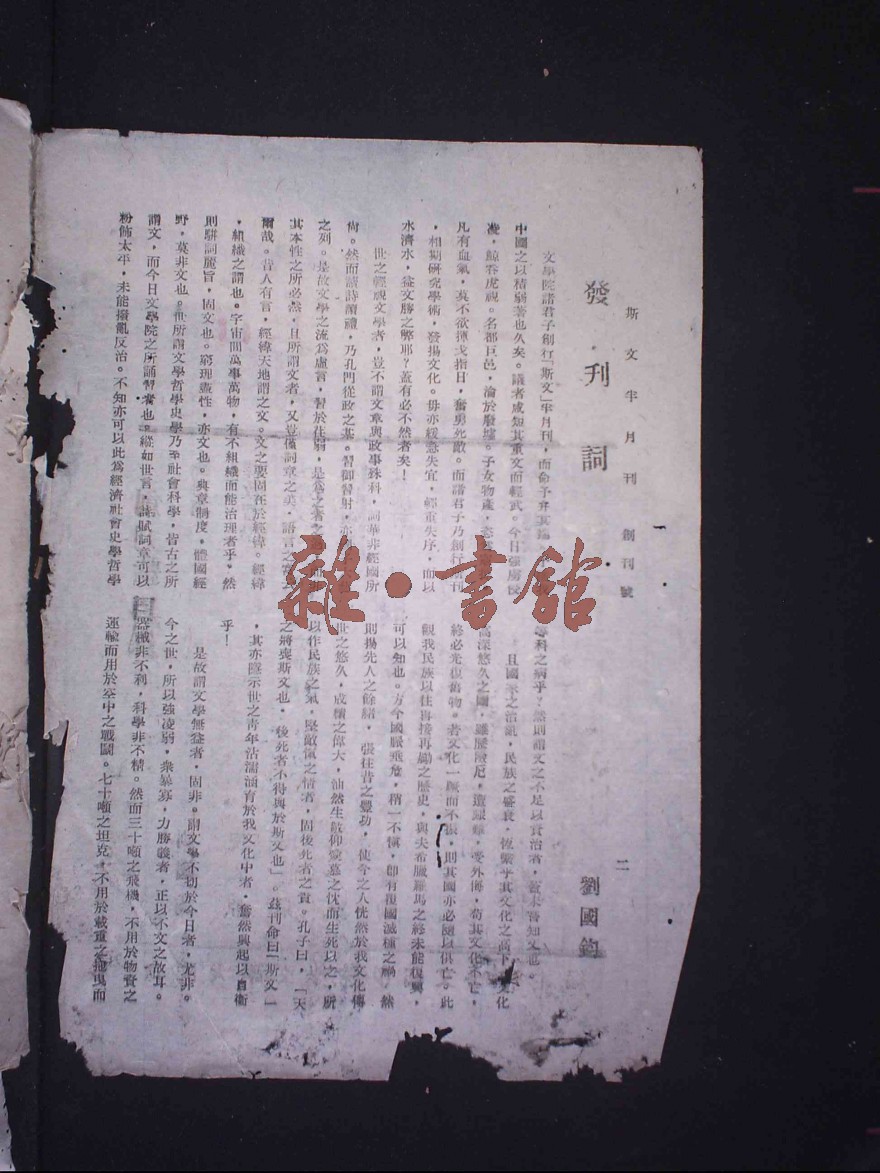 斯文半月刊 創刊號 二
發刊詞
劉國鈞
文學院諸君子創行「斯文」半月刊,而命予弁其端
中國之以積弱著也久矣。議者咸短其重文而輕武。今日強虜侵
凌,鯨吞虎視。名都巨邑,淪於廢墟。子女物產,
凡有血氣,莫不欲揮戈指日,奮勇死敵。而諸君子乃創行斯刊
,相期研究學術,發揚文化。毋亦緩急失宜,輕重失序,而以
水濟水,益文勝之弊耶?蓋有必不然者矣!
世之輕視文學者,豈不謂文章與政事殊科,詞華非經國所
尙。然而誦詩讀禮,乃孔門從政之基。習御習射,亦
之列。是故文學之流爲虛言,習於佳弱,是爲之者之
其本性之所必然,且所謂文者,又豈僅詞章之美,語言之
爾哉。昔人有言,經緯天地謂之文。文之要固在於經緯。經緯
,組織之謂也。宇宙間萬事萬物,有不組織而能治理者乎。然
則駢詞麗旨,固文也。窮理盡性,亦文也。典章制度,體國經
野,莫非文也。世所謂文學哲學史學乃至社會科學,皆古之所
謂文,而今日文學院之所誦習者也。縱如世言,詩賦詞章可以
粉飾太平,未能撥亂反治。不知亦可以此爲經濟社會史學哲學
專科之病乎?然則謂文之不足以資治者,蓋未審知文也。
且國家之治亂,民族之盛衰,恆繫乎其文化之高下。文化
高深悠久之國,雖歷險厄,遭艱難,受外侮,苟其文化不亡,
終必光復舊物。若文化一蹶而不振,則其國亦必隨以俱亡。此
觀我民族以往再接再勵之歷史,與夫希臘羅馬之終未能復興,
可以知也。方今國脈垂危,稍一不愼,卽有覆國滅種之禍。然
則揚先人之餘緒,張往昔之豐功,使今之人恍然於我文化傳
世之悠久,成績之偉大,油然生敬仰愛慕之忱而生死以之,所
以作民族之氣,堅敵愾之情者,固後死者之責。孔子曰,「天
之將喪斯文也,後死者不得與於斯文也」。茲刊命曰「斯文」
,其亦隱示世之靑年沾濡涵育於我文化中者,奮然興起以自衞
乎!
是故謂文學無益者,固非。謂文學不切於今日者,尤非。
今之世,所以強凌弱,衆暴寡,力勝義者,正以不文之故耳。
器械非不利,科學非不精。然而三十噸之飛機,不用於物資之
運輸而用於空中之戰鬬。七十噸之坦克,不用於載重之拖曳而
雜·書館